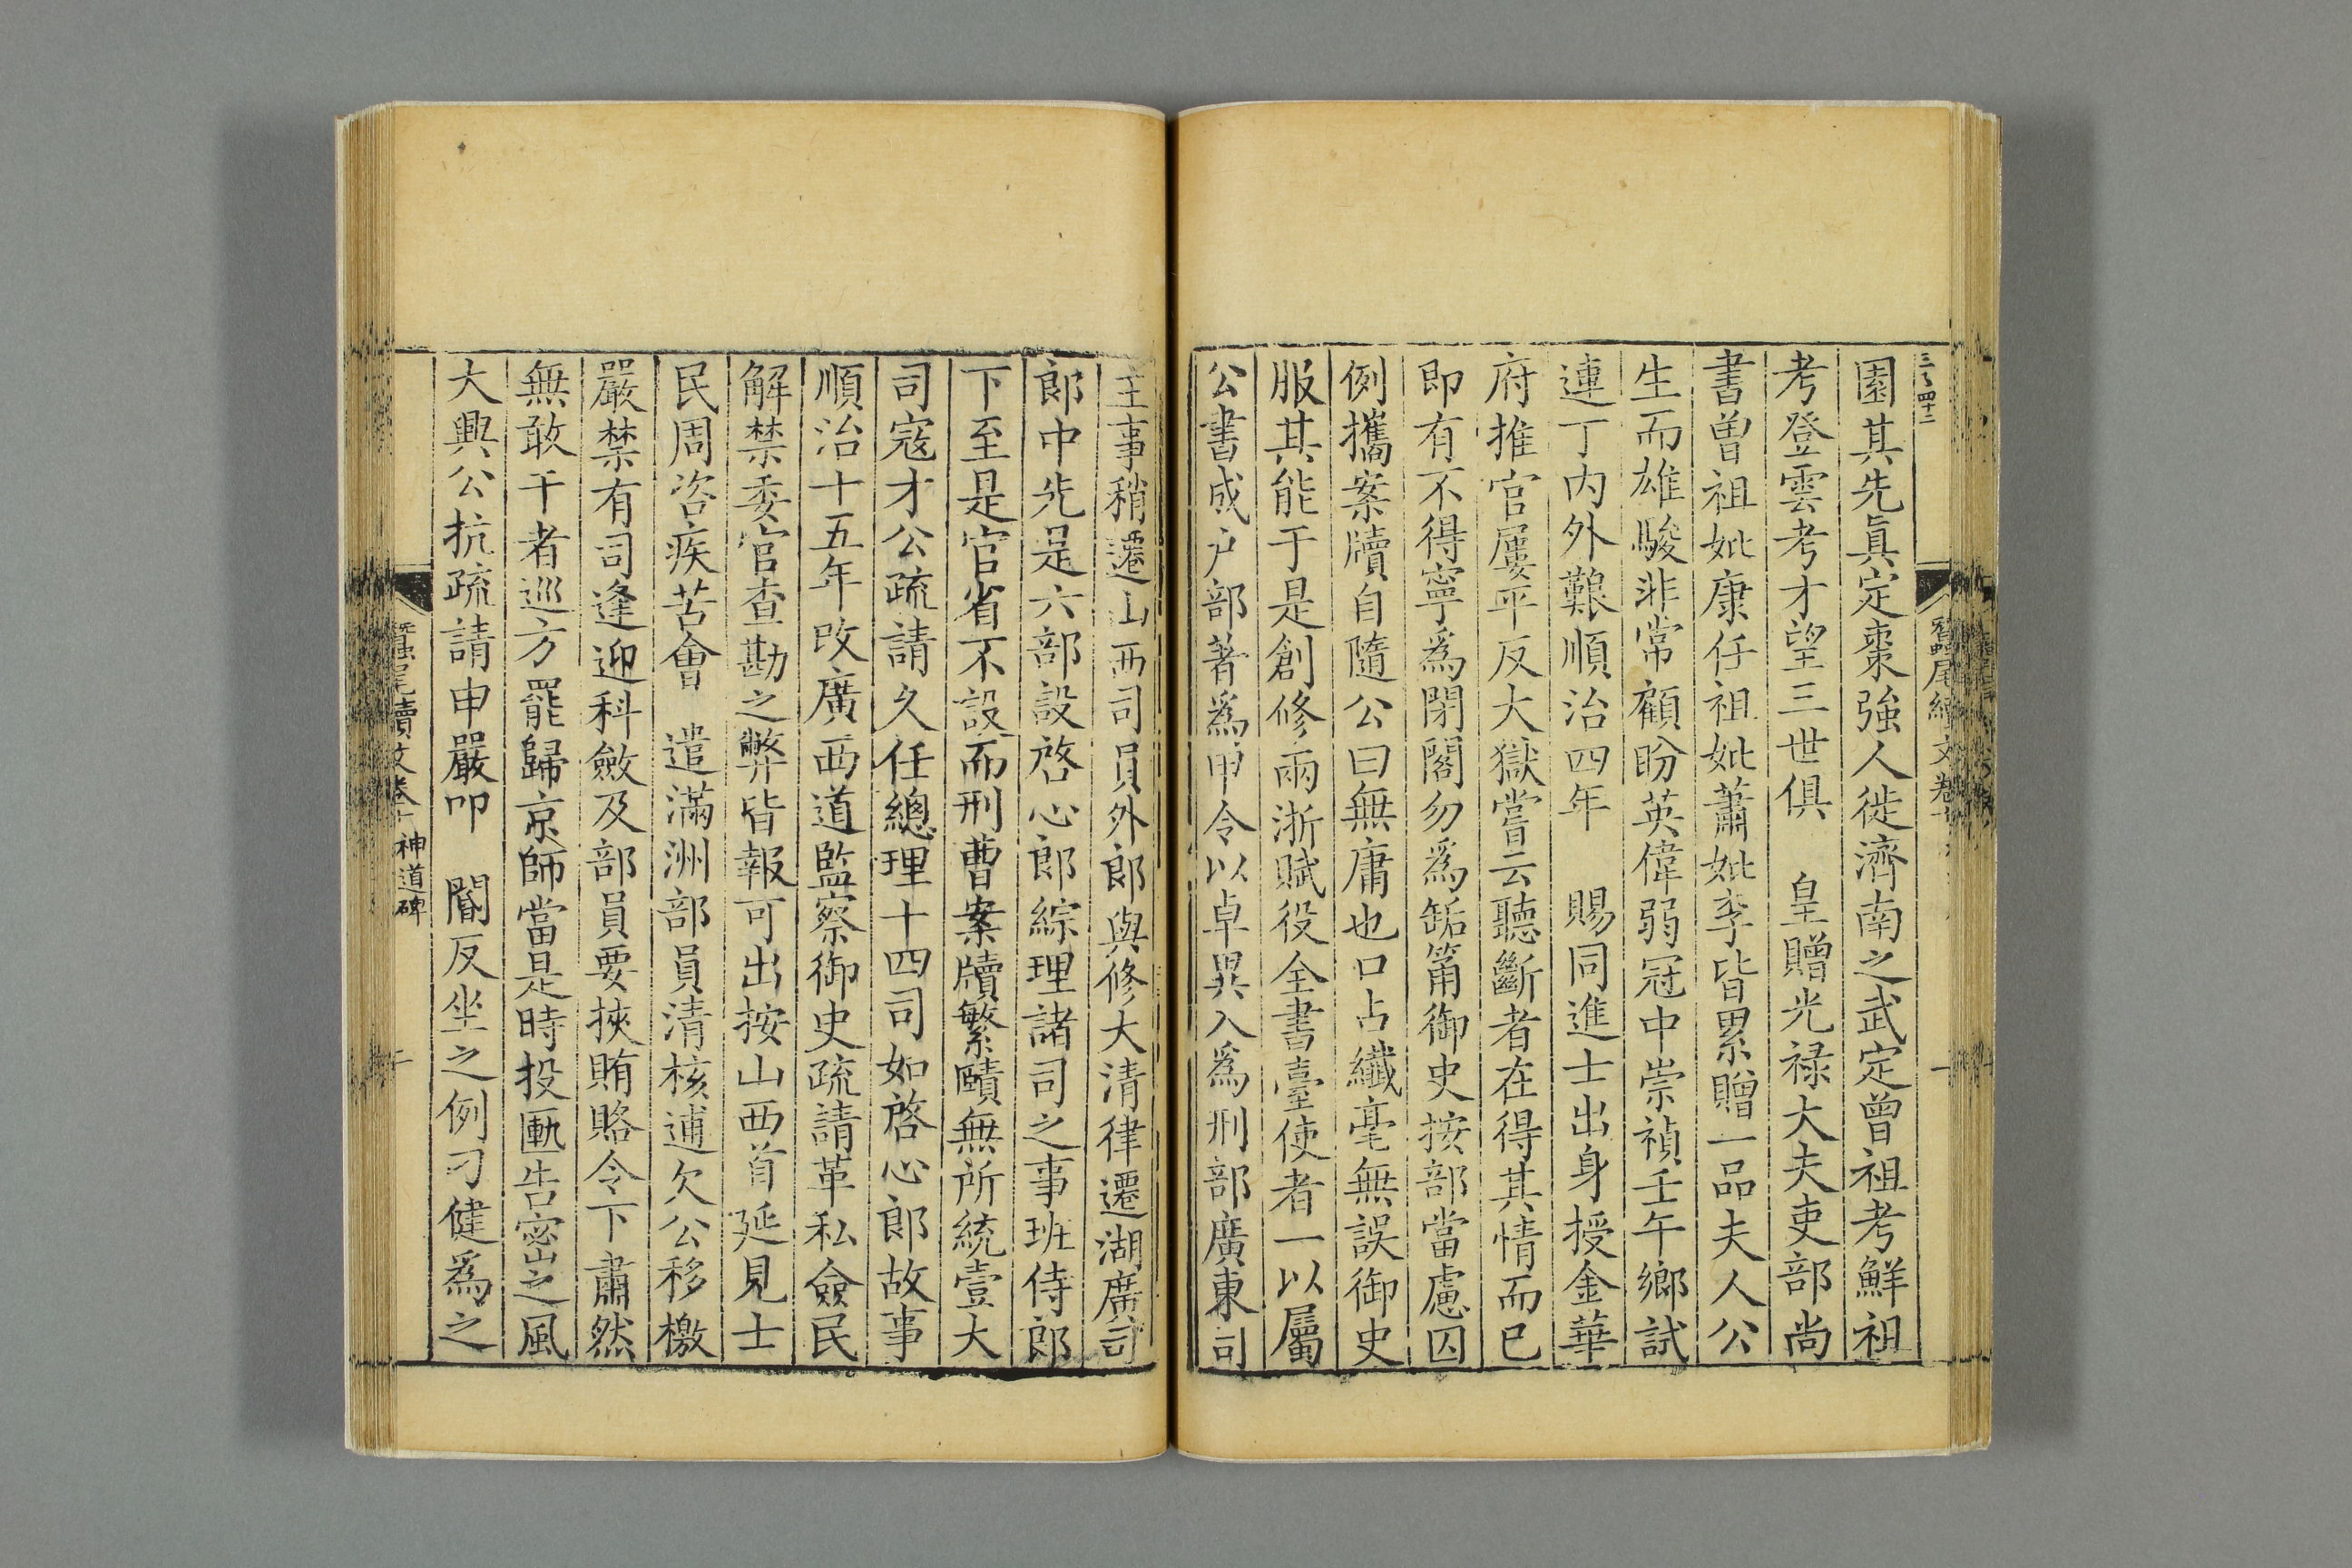 園其先眞定棗強人徙濟南之武定曾祖考鮮祖
考登雲考才望三世俱　皇贈光祿大夫吏部尚
書曾祖妣康任祖妣蕭妣李皆累贈一品夫人公
生而雄駿非常顧盼英偉弱冠中崇禎壬午鄉試
連丁內外艱順治四年　賜同進士出身授金華
府推官屢平反大獄嘗云聽斷者在得其情而已
即有不得寧爲閉閣勿爲缿筩御史按部當慮囚
例攜案牘自隨公曰無庸也口占纖毫無誤御史
服其能于是創修兩浙賦役全書臺使者一以屬
公書成戶部著爲甲令以卓異入爲刑部廣東司
主事稍遷山西司員外郎與修大清律遷湖廣司
郎中先是六部設啓心郎綜理諸司之事班侍郎
下至是官省不設而刑曹案牘繁賾無所統壹大
司寇才公疏請久任總理十四司如啓心郎故事
順治十五年改廣西道監察御史疏請革私僉民
解禁委官查勘之弊皆報可出按山西首延見士
民周咨疾苦會　遣滿洲部員清核逋欠公移檄
嚴禁有司逢迎科斂及部員要挾賄賂令下肅然
無敢干者巡方罷歸京師當是時投匭告密之風
大興公抗疏請申嚴叩　閽反坐之例刁健爲之
蠶尾續文卷
神道碑